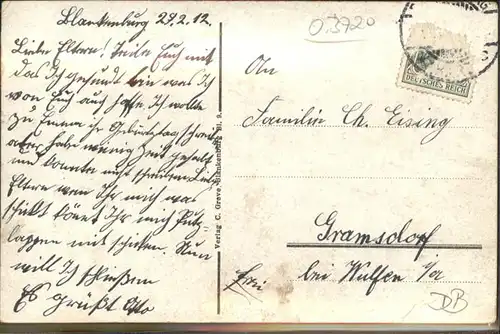 Blankenburg 29.2.12.
Liebe Eltern! Teile Euch mit
das Ich gesund bin was Ich
von Euch auch hoffe Ich wollte
zu Emma ihr Geburtstag schreiben
aber habe wenig Zeit gehabt
und konnte nicht schreiben Liebe
Eltern wen Ihr mich was
schikt könt Ihr mich Putz-
lappen mit schiken. Nun
will Ich schließen
Es grüßt Otto
Verlag C. Greve, Blankenburg
0.3920
DEUTSCHES REICH
An
Familie Ch. Eising
Gramsdorf
bei Wulfen i/a
Frei
DB